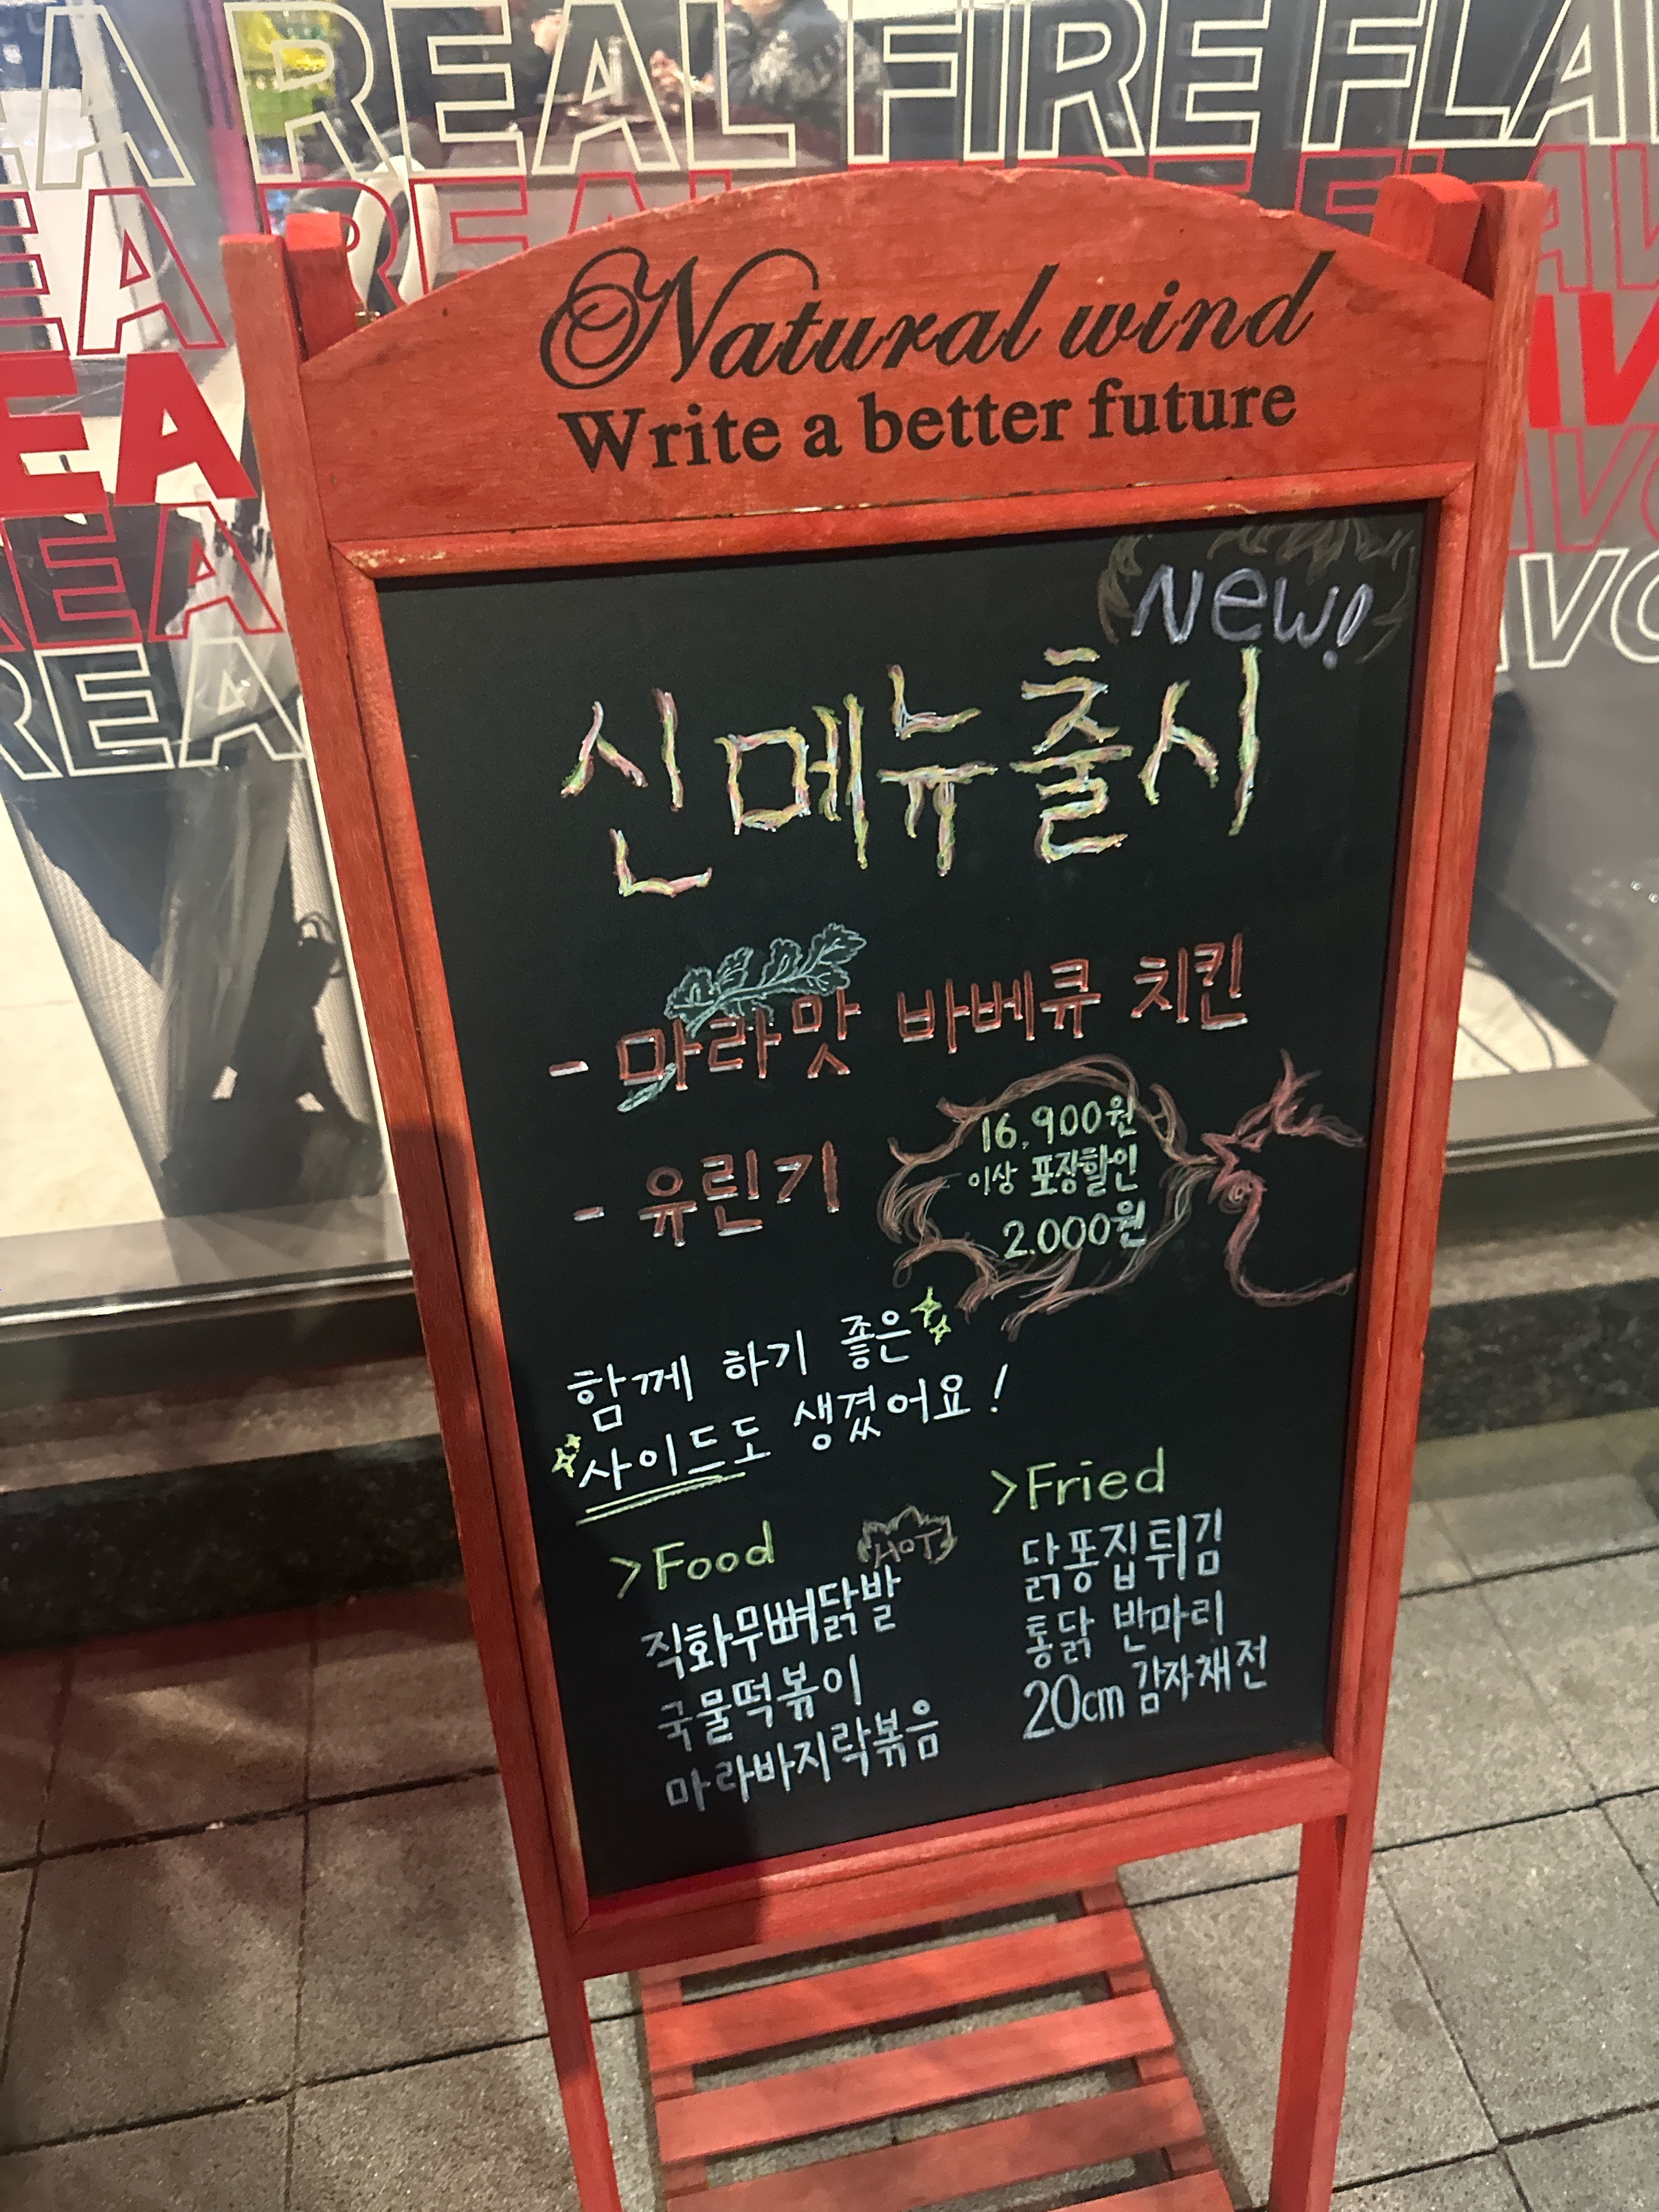 REAL FIRE FLA
REA REAL FIRE FLAV
EA AV
REA AVO
REA AVO
Natural wind
Write a better future
New!
신메뉴출시
- 마라맛 바베큐 치킨
- 유린기
16,900원
이상 포장할인
2.000원
함께 하기 좋은
사이드도 생겼어요!
>Food
HOT
직화무뼈닭발
국물떡볶이
마라바지락볶음
>Fried
닭똥집튀김
통닭 반마리
20cm 감자채전